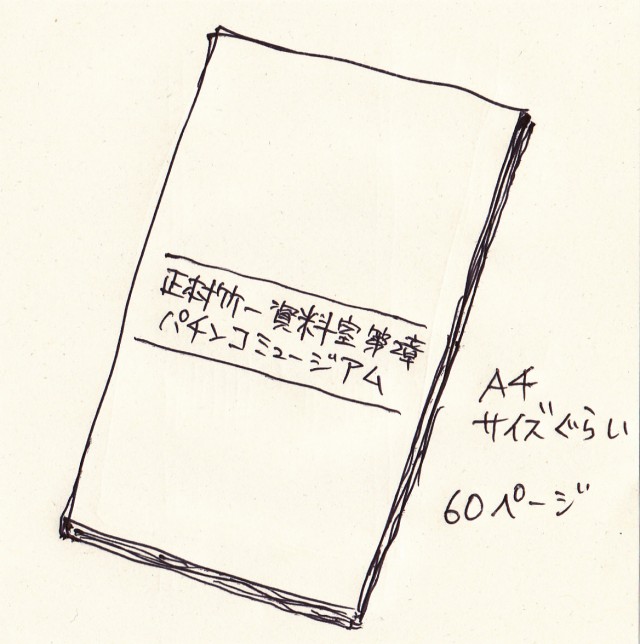 正村竹一 資料室 第2章
パチンコミュージアム
A4
サイズぐらい
60ページ